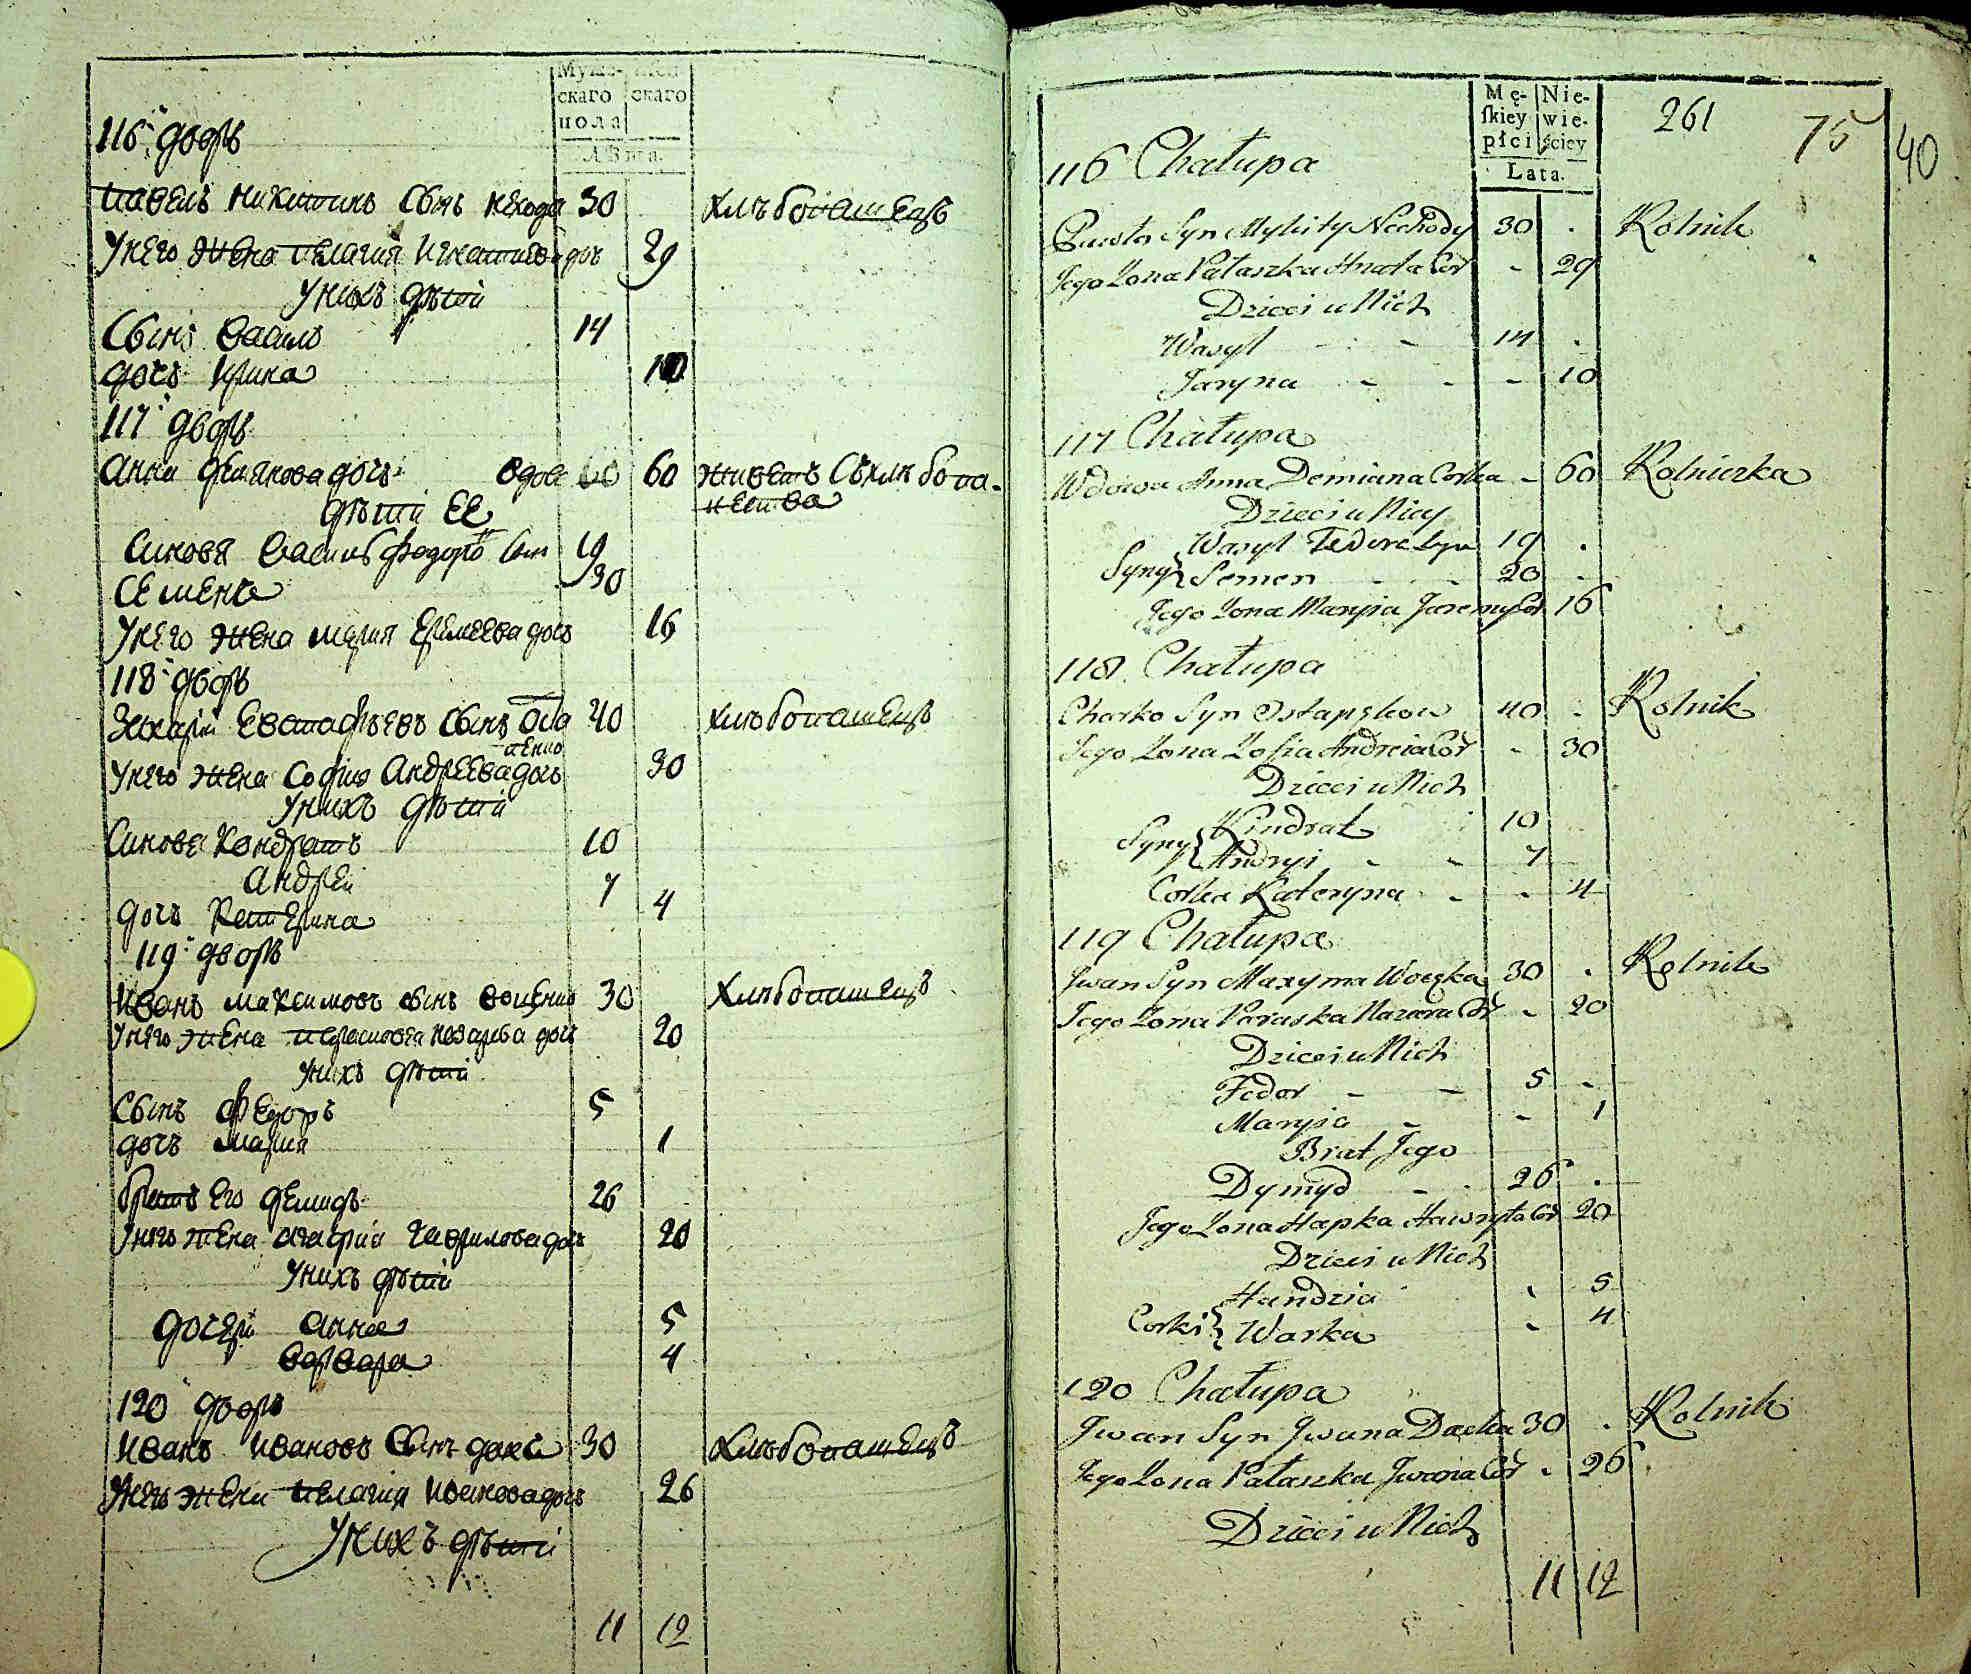 Муже- Женс-
скаго скаго
пола
Лѣта.
116 дворъ
Павелъ Никитинъ сынъ Нехода 30 Хлѣбопашецъ
У него жена Пелагия Игнатиева доч 29
У нихъ дѣти
Сынъ Василь 14
дочь Ирина 10
117 дворъ
Анна Демянова дочь вдова 60 живетъ съ хлѣбопа-
шества
дѣти ее
Синовя Василь Федоро сын 19
Семенъ 30
У него жена Мария Еремеева дочь 16
118 дворъ
Захарий Евстафѣевъ сынъ Оста 40 хлѣбопашецъ
пенко
У него жена София Андреева дочь 30
У нихъ дѣти
Синовя Кондратъ 10
Андрей 7
дочь Катерина 4
119 дворъ
Иванъ Максимовъ сынъ Воценко 30 Хлѣбопашецъ
У него жена Парасковея Назарова доч 20
У нихъ дѣти
Сынъ Федоръ 5
дочь Мария 1
братъ его Демидъ 26
У него жена Агафия Гаврилова доч 20
У нихъ дѣти
дочери Анна 5
Варвара 4
120 дворъ
Иванъ Ивановъ сынъ 30 Хлѣбопашецъ
У него жена Пелагия Иванова дочь 26
У нихъ дѣти
11 12
Mę- Nie-
skiey wie-
płci ściey
Lata.
261 75 40
116 Chałupa
Pawło Syn Mykity Nechody 30 . Rolnik
Jego Zona Pałaszka Hnata Cor - 29
Dzieci u Nich
Wasyl - - 14 .
Jaryna - - - 10
117 Chałupa
Wdowa Anna Demiana Corka - 60 Rolniczka
Dzieci u Niey
Wasyl Fedora Syn 19 .
Syny { Semen - - 20 -
Jego Zona Maryia Jaremy Cor 16
118 Chałupa
Charko Syn Ostapskow 40 . Rolnik
Jego Zona Zofia Andreia Cor - 30
Dzieci u Nich
Syny { Kindrat 10
Andryi - - 7
Corka Kateryna - - 4
119 Chałupa
Jwan Syn Maxyma Woczka 30 . Rolnik
Jego Zona Paraska Nazara Cor - 20
Dzieci u Nich
Fedor - - 5 -
Maryia - - 1
Brat Jego
Dymyd - - 26 .
Jego Zona Hapka Hawryła Cor 20
Dzieci u Nich
Handzia - 5
Corki { Warka - 4
120 Chałupa
Jwan Syn Jwana Dacka 30 . Rolnik
Jego Zona Pałaszka Jwana Cor - 26
Dzieci u Nich
11 12